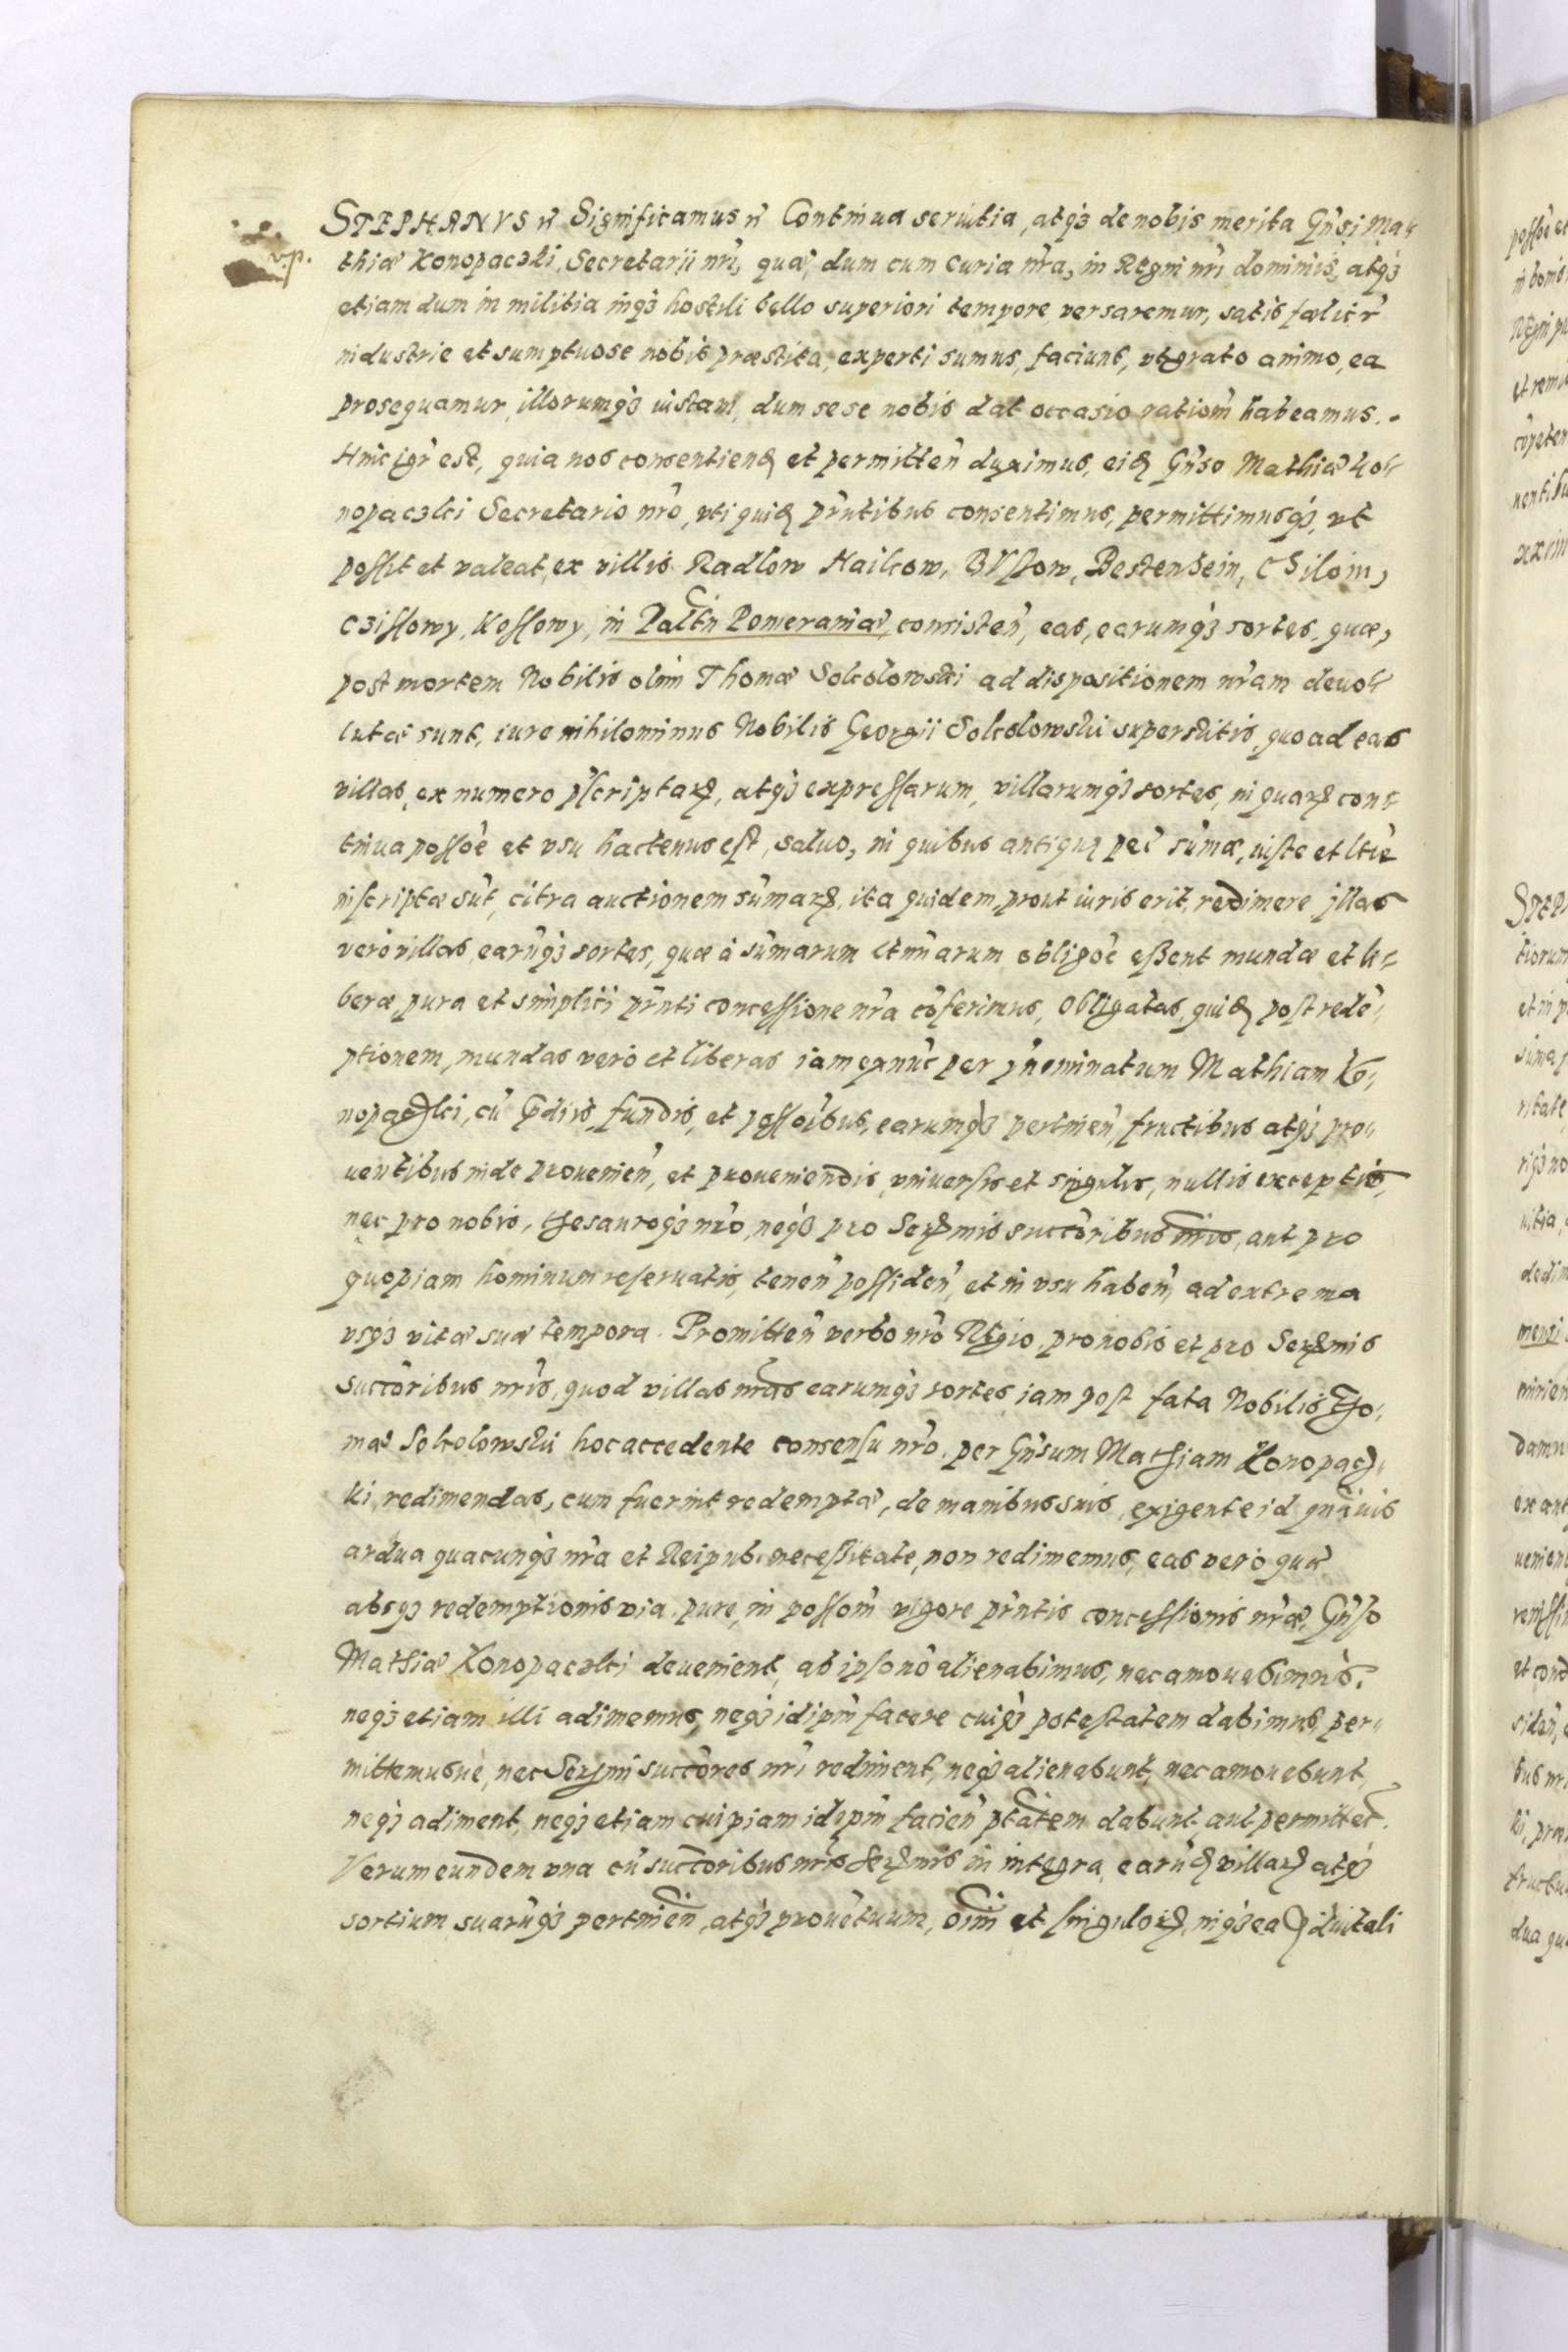 STEPHANVS etc Significamus etc Continua seruitia, atq3 de nobis merita Gn̄si Ma-
v.p.
thiæ Konopaczki, Secretarii nr̄i, quæ, dum cum Curia nr̄a, in Regni nr̄i dominiis, atq3
etiam dum in militia inq3 hostili bello superiori tempore versaremur, satis fœlicr̄
industrie et sumptuose nobis præstita, experti sumus, faciunt, vt grato animo, ea
prosequamur, illorumq3 iustam, dum sese nobis dat occasio ratiom̄ habeamus.
Hinc igr̄ est, quia nos consentiend et permitten̄ duximus, eid Gn̄so Mathiæ Ko-
nopaczki Secretario nr̄o, vti quid pn̄tibus consentimus, permittimusq3, vt
possit et valeat, ex villis Radlow Hailcow, Bystow, Bestenhein, Chiloin,
Czissowy, Kossowy, in Paltn̄ Pomeraniæ, consisten̄, eas, earumq3 sortes, quæ,
post mortem Nobilis olim Thomæ Sokolowski ad dispositionem nr̄am deuo-
lutæ sunt, iure nihilominus Nobilis Georgii Sokolowskii superstitis, quo ad eas
villas, ex numero pscriptar, atq3 expressarum, villarumq3 sortes, in quar con-
tinua possoe et vsu hactenus est, saluo, in quibus antiquæ pec sūmæ, iuste et ltie
inscriptæ sūt, citra auctionem sūmar, ita quidem, prout iuris erit, redimere illas
vero villas, earūq3 sortes, quæ à sūmarum ltimarum obligōe essent mundæ et li-
beræ, pura et simplici pn̄ti concessione nr̄a cōferimus, Obligatas, quid post redē-
ptionem, mundas vero et liberas iam exnūc per pn̄ominatum Mathiam Ko-
nopaczki, cū prædiis, fundis, et possoibus, earumq3 pertinen̄ fructibus atq3 pro-
uentibus inde prouenien̄, et proueniendis, vniuersis et singulis, nullis exceptis,
nec pro nobis, thesauroq3 nr̄o, neq3 pro Sermis succoribus nr̄is, aut pro
quopiam hominum reseruatis, tenen̄ possiden̄, et in vsu haben̄, ad extrema
vsq3 vitæ suæ tempora. Promitten̄ verbo nr̄o Regio, pro nobis et pro Sermis
succoribus nr̄is, quod villas nr̄as earumq3 sortes, iam post fata Nobilis Tho-
mæ Sokolowskii hoc accedente consensu nr̄o, per Gn̄sum Mathiam Konopacz-
ki, redimendas, cum fuerint redemptæ, de manibus suis, exigente id quāuis
ardua quacunq3 nr̄a et Reipub. necessitate, non redimemus, eas vero quæ
absq3 redemptionis via, pure, in possom̄ vigore pn̄tis concessionis nr̄æ, Gn̄so
Mathiæ Konopaczki deuenient, ab ipso nō alienabimus, nec amouebimus,
neq3 etiam illi adimemus, neq3 idipm̄ facere cuiq3 potestatem dabimus, per-
mittemusue, nec Sermi succores nr̄i rediment, neq3 alienabunt, nec amouebunt,
neq3 adiment, neq3 etiam cuipiam idipm̄ facien̄ ptātem dabunt aut permittet.
Verum eundem vna cū succoribus nr̄is Sermis in integra, earūd villar atq3
sortium, suarūq3 pertinen̄, atq3 prouētuum, oīm et singulor, inq3 ea aduitali